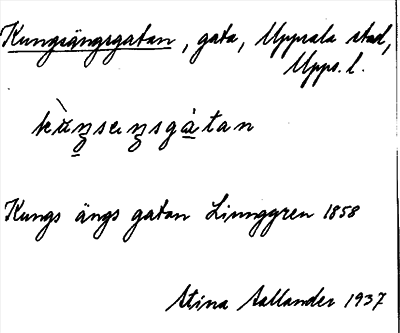 Kungsängsgatan, gata, Uppsala stad,
Upps. l.
kàŋsæŋsgàtan
Kungs ängs gatan Linnggren 1858
Stina Aallander 1937